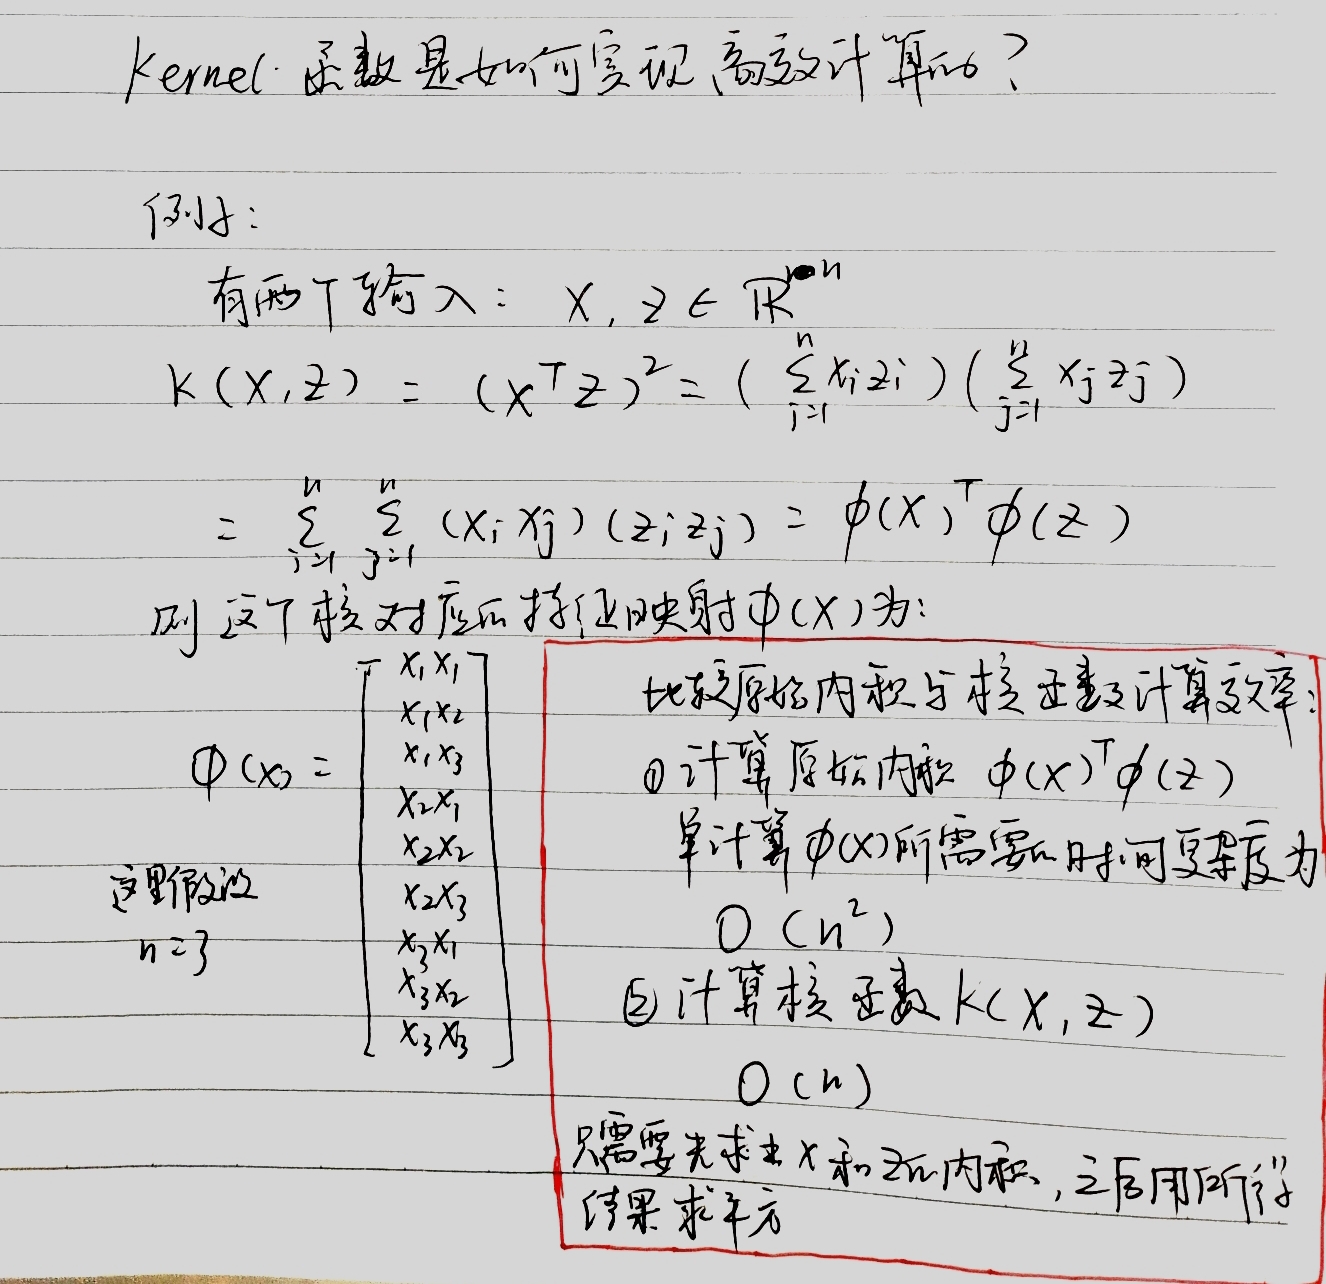 Kernel 函数是如何实现高效计算的?
例子:
有两个输入: X, z ∈ ℝⁿ
K(X,z) = (X^T z)² = (∑_{i=1}^{n} x_i z_i)(∑_{j=1}^{n} x_j z_j)
= ∑_{i=1}^{n} ∑_{j=1}^{n} (x_i x_j)(z_i z_j) = φ(X)^T φ(z)
则这个核对应的特征映射φ(X)为:
φ(x) =
x₁x₁
x₁x₂
x₁x₃
x₂x₁
x₂x₂
x₂x₃
x₃x₁
x₃x₂
x₃x₃
这里假设
n=3
比较原始内积与核函数计算效率:
① 计算原始内积 φ(X)^T φ(z)
单计算φ(X)所需要的时间复杂度为
O(n²)
② 计算核函数 K(X, z)
O(n)
只需要先求出 X 和 z的内积, 之后用所得
结果求平方